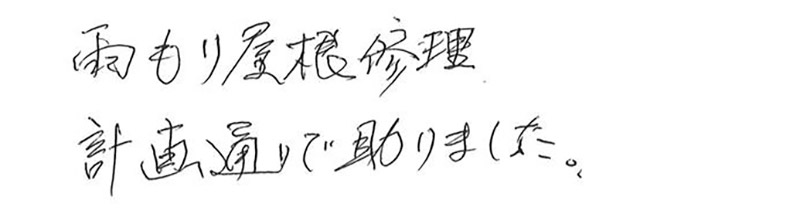 雨もり屋根修理
計画通りで助りました。